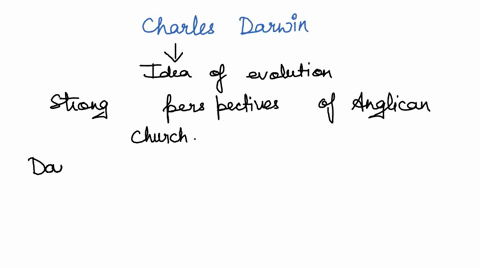 Charles Darwin
Idea of evolution
Strong perspectives of Anglican
church.
Da